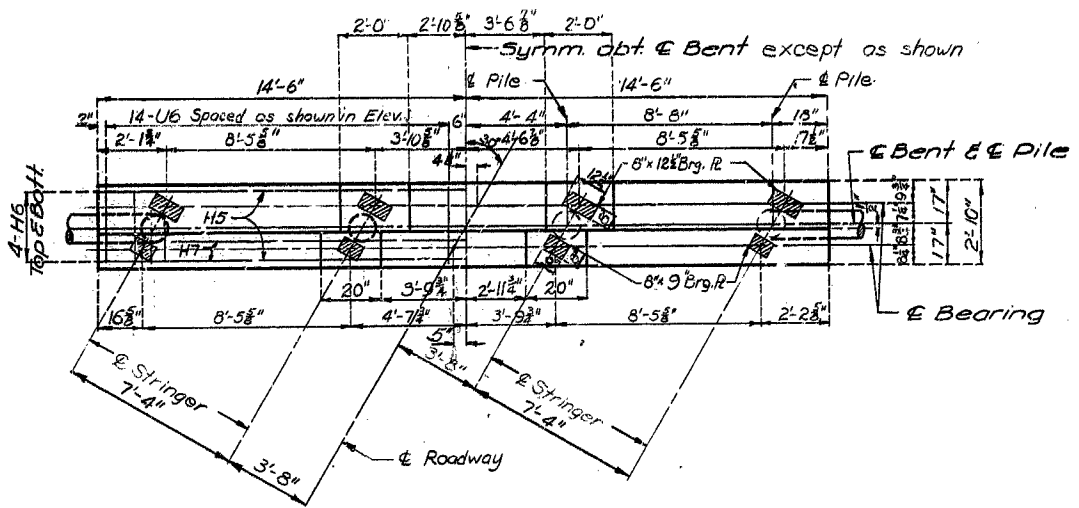 2'-0" 2'-10 5/8" 3'-6 7/8" 2'-0"
Symm. abt. ℄ Bent except as shown
14'-6" ℄ Pile 14'-6" ℄ Pile
2" 14-U6 Spaced as shown in Elev. 6" 4'-4" 8'-8" 18"
2'-1 3/4" 8'-5 5/8" 3'-10 5/8" 30° 4'-6 7/8" 8'-5 5/8" 17 1/2"
8" x 12 1/2" Brg. ℞
℄ Bent & ℄ Pile
4-H6
Top & Bott.
H5
H7
17" 17"
2'-10"
8" x 9" Brg. ℞
20" 3'-9 3/4" 2'-11 3/4" 20"
℄ Bearing
16 5/8" 8'-5 5/8" 4'-7 3/4" 3'-9 3/4" 8'-5 5/8" 2'-2 5/8"
5"
3'-8"
℄ Stringer
7'-4"
℄ Stringer
7'-4"
3'-8"
℄ Roadway